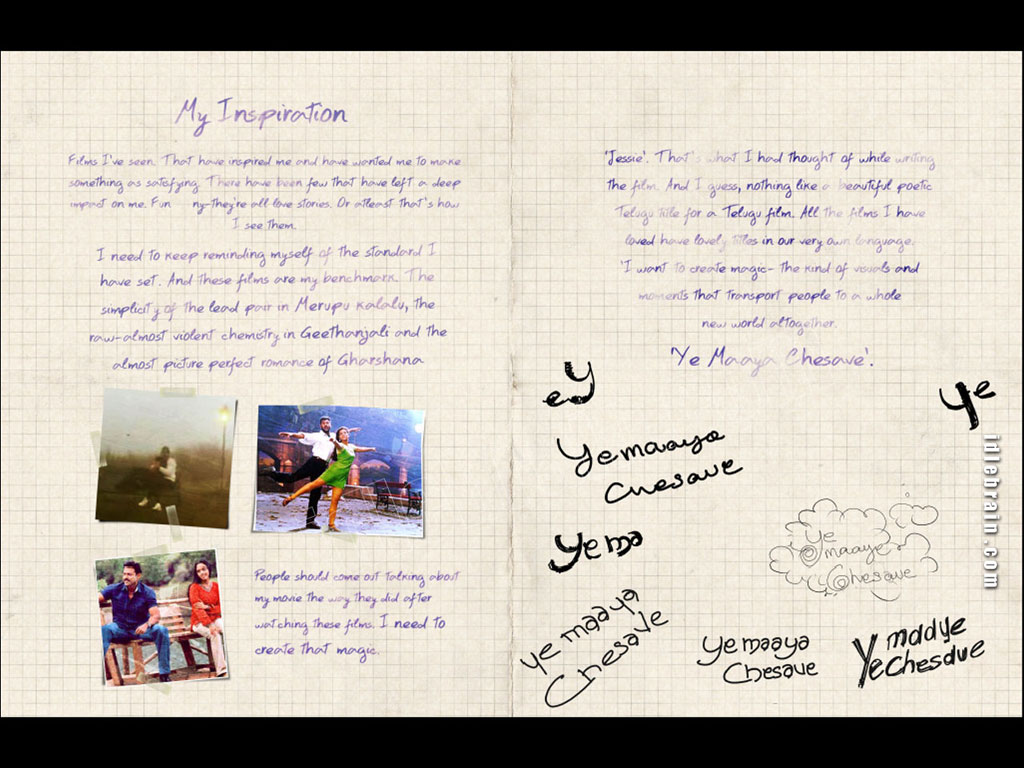 My Inspiration
Films I've seen. That have inspired me and have wanted me to make
something as satisfying. There have been few that have left a deep
impact on me. Fun ny-they're all love stories. Or atleast that's how
I see them.
I need to keep reminding myself of the standard I
have set. And these films are my benchmark. The
simplicity of the lead pair in Merupu Kalalu, the
raw-almost violent chemistry in Geethanjali and the
almost picture perfect romance of Gharshana
People should come out talking about
my movie the way they did after
watching these films. I need to
create that magic.
'Jessie'. That's what I had thought of while writing
the film. And I guess, nothing like a beautiful poetic
Telugu title for a Telugu film. All the films I have
loved have lovely titles in our very own language.
'I want to create magic- the kind of visuals and
moments that transport people to a whole
new world altogether.
'Ye Maaya Chesave'.
eY
Ye
Yemaaya
Chesave
Yema
Ye
maaye
Chesave
ye maaya
Chesave
Ye maaya
Chesave
Ye maaye
Chesave
idlebrain.com